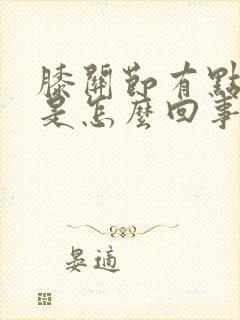 膝關節有點
是怎麼回事
晏適